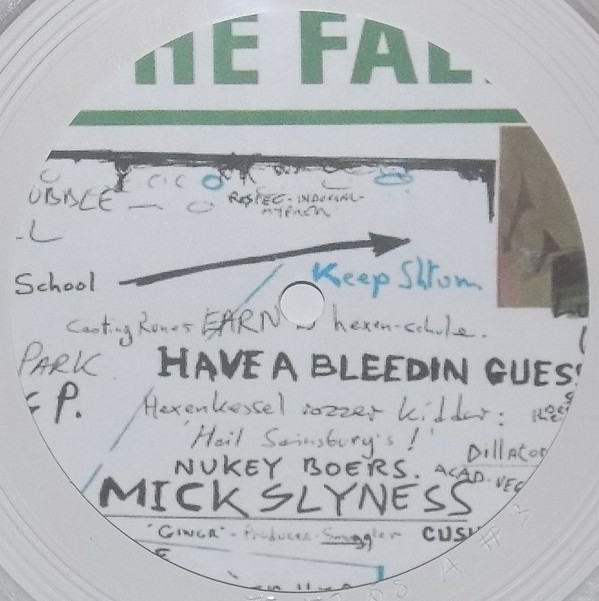 HE FAL
UBBLE
RESPEC-INDUSTRIAL-
HYPHEN
-L
School
Keep Shtum
Casting Runes EARN hexen-schule.
PARK
HAVE A BLEEDIN GUES
P.
Hexenkessel rozzer kidder:
'Hail Sainsbury's!'
Dillator
NUKEY BOERS. ACAD. VEG
MICK SLYNESS
'GINGR' - Producer-Smuggler CUSH